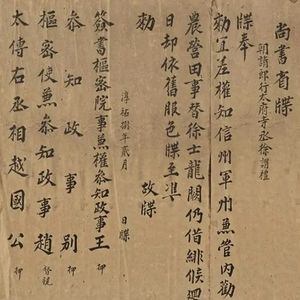 尚書省牒
朝請郎行太府寺丞徐謂禮
牒奉
勅宜差權知信州軍州兼管內勸
農營田事替徐士龍闕仍借緋候迴
日却依舊服色牒至準
勅 故牒
淳祐捌年貳月 日牒
簽書樞密院事兼權參知政事王 押
參知政事別 押
樞密使兼參知政事趙 督視
太傅右丞相越國公 押